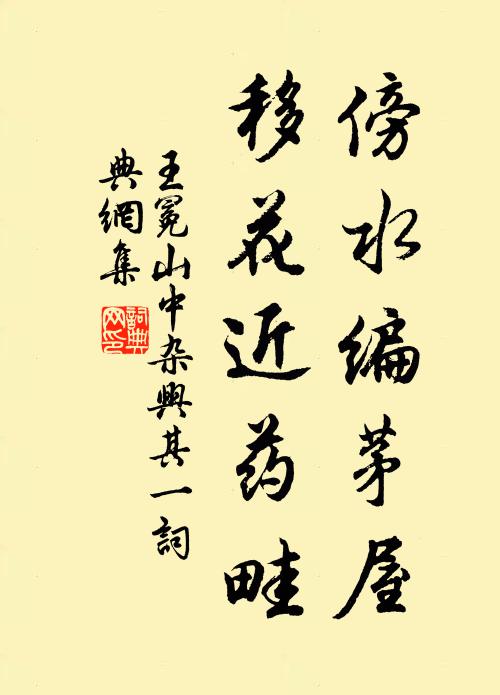 傍水编茅屋
移花近药畦
王冕山中杂興其一詞
典網集
詞典
网印